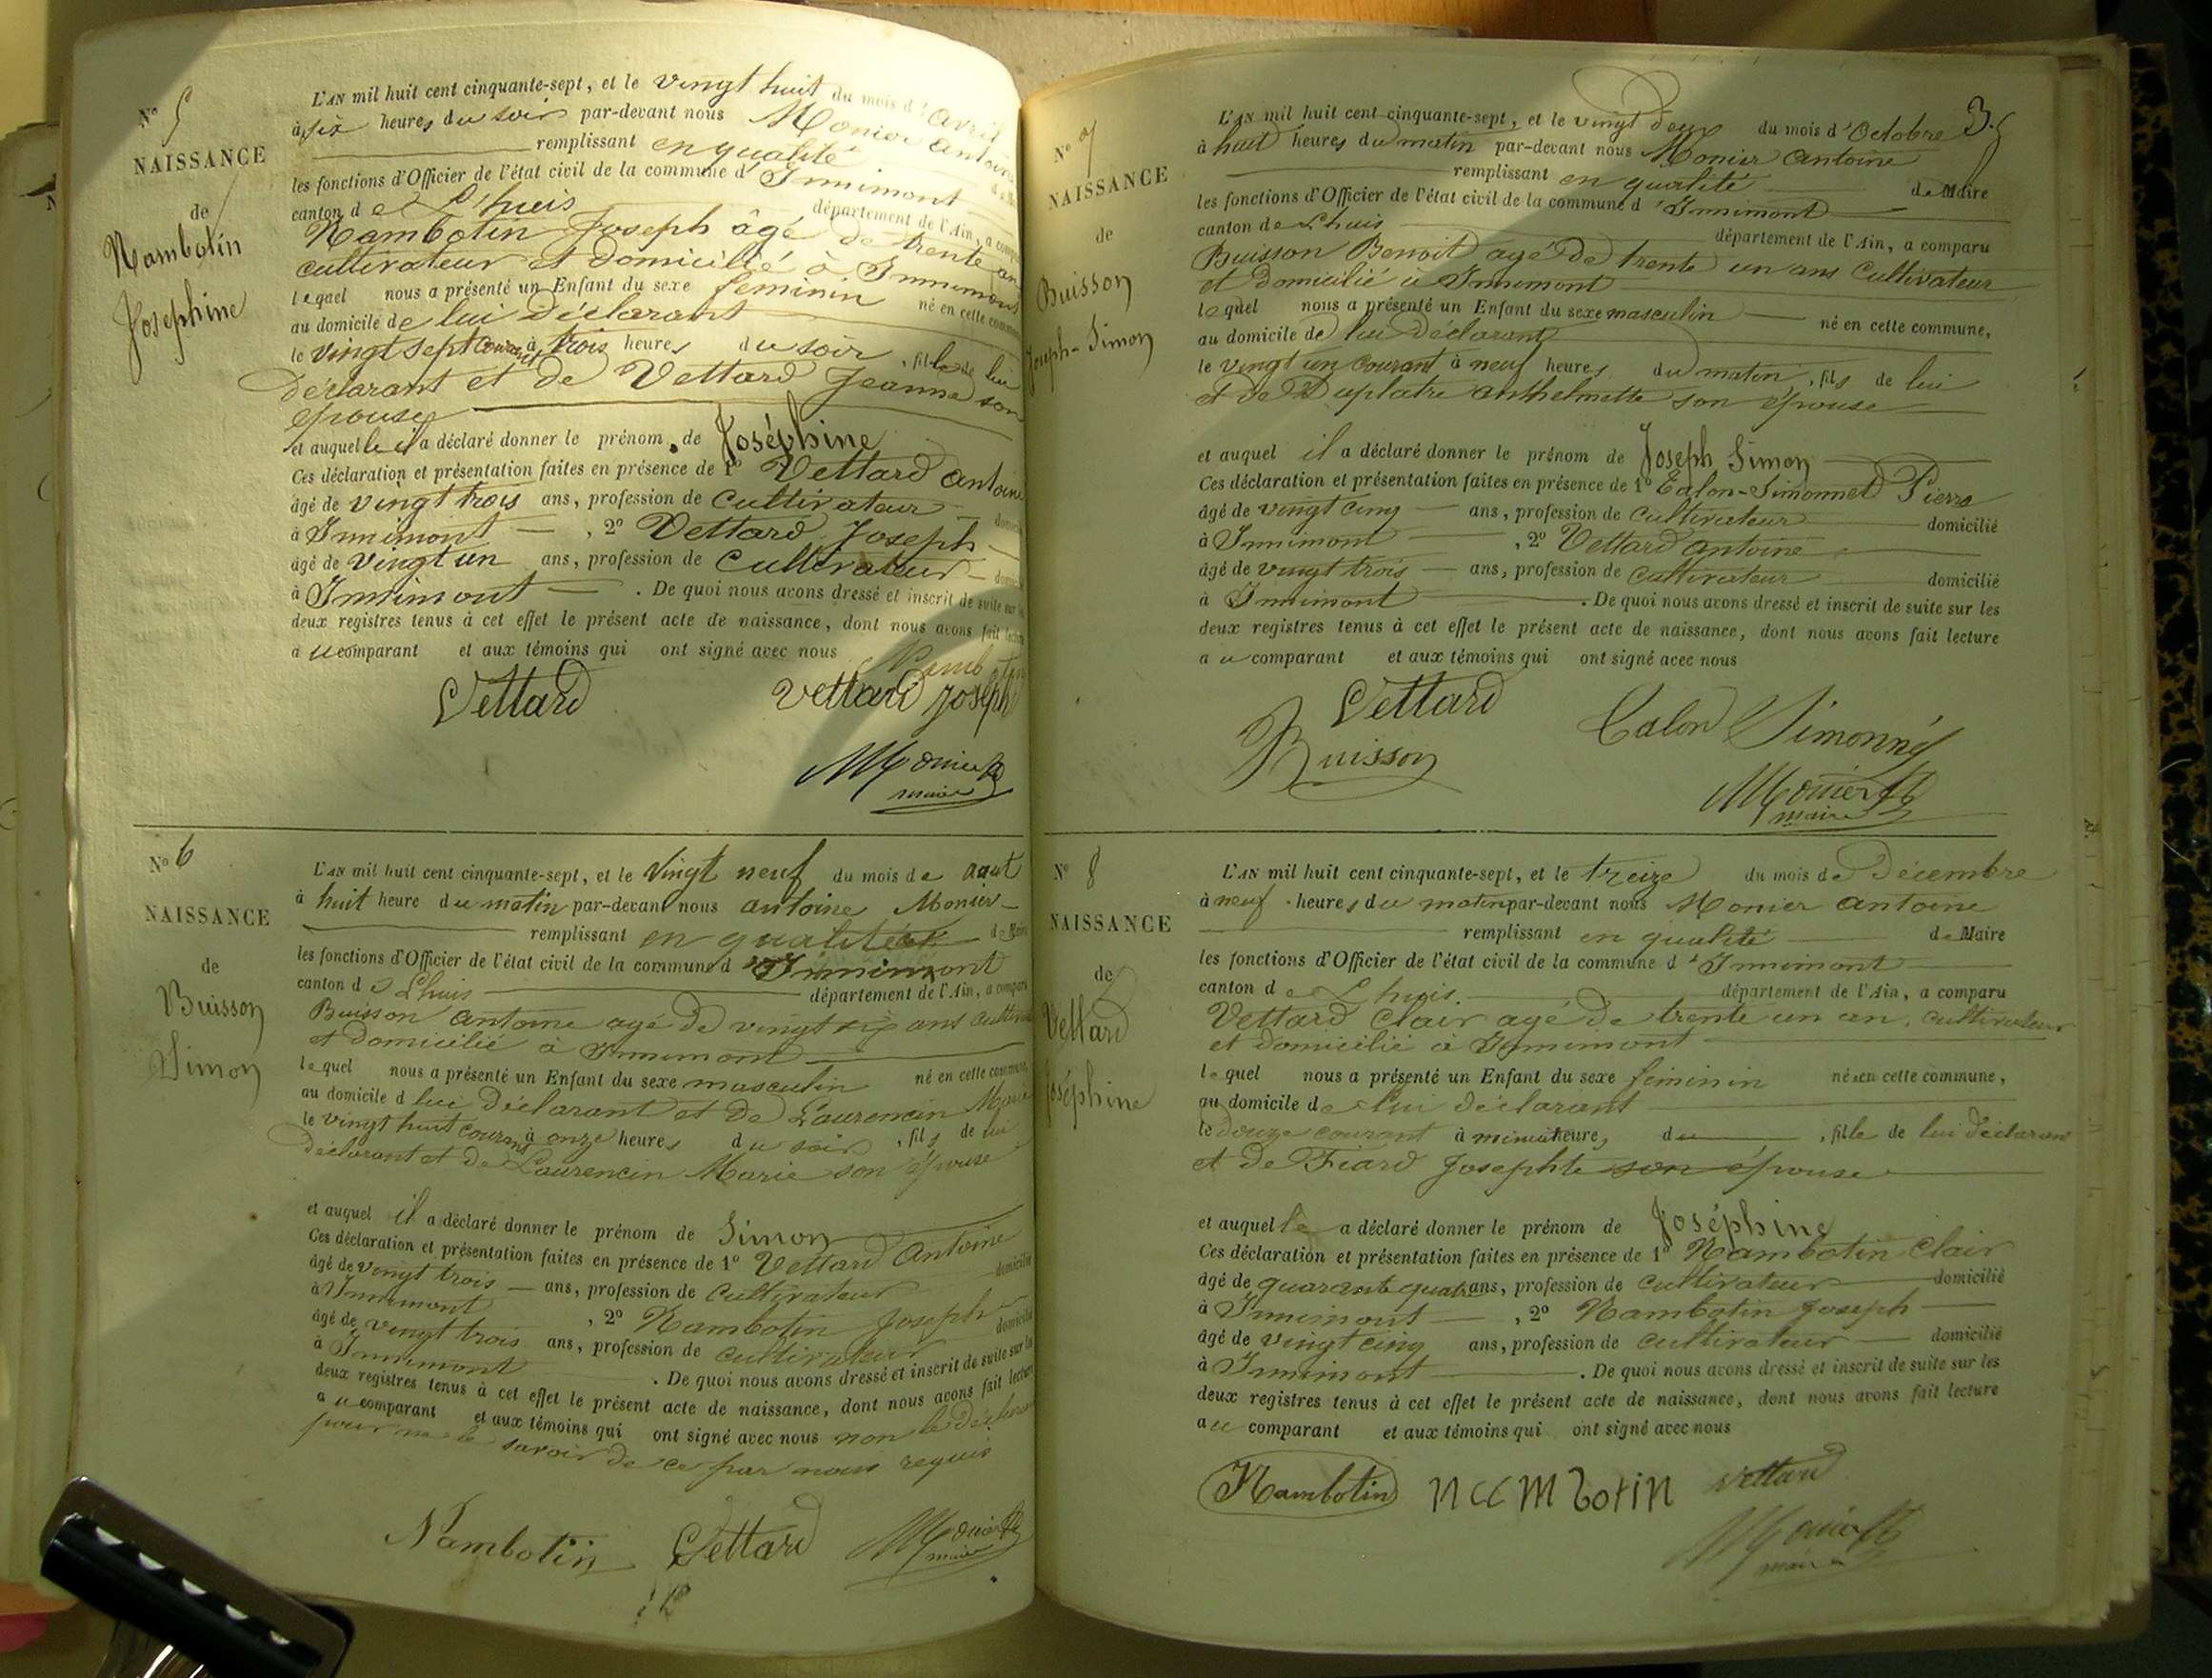 N° 5
NAISSANCE
de
Nambotin
Josephine
L'AN mil huit cent cinquante-sept, et le vingt huit du mois d'Avril
à six heures du soir par-devant nous Monier Antoine
remplissant en qualité
les fonctions d'Officier de l'état civil de la commune d'Innimont
canton de L'huis département de l'Ain, a comp
Nambotin Joseph âgé de trente an
cultivateur et domicilié à Innimont
lequel nous a présenté un Enfant du sexe feminin né en cette commu
au domicile de lui déclarant
le vingt sept courant à trois heures du soir, fille de lui
déclarant et de Vettard Jeanne son
épouse
et auquelle il a déclaré donner le prénom de Joséphine
Ces déclaration et présentation faites en présence de 1° Vettard Antoine
âgé de vingt trois ans, profession de cultivateur domici
à Innimont, 2° Vettard Joseph
âgé de vingt un ans, profession de Cultivateur domici
à Innimont. De quoi nous avons dressé et inscrit de suite sur les
deux registres tenus à cet effet le présent acte de naissance, dont nous avons fait lecture
au comparant et aux témoins qui ont signé avec nous
Nambotin
Vettard Vettard Joseph
Monier
maire
N° 6
NAISSANCE
de
Buisson
Simon
L'AN mil huit cent cinquante-sept, et le vingt neuf du mois de aout
à huit heure du matin par-devant nous antoine Monier
remplissant en qualité de Maire
les fonctions d'Officier de l'état civil de la commune d'Innimont
canton de Lhuis département de l'Ain, a comparu
Buisson Antoine agé de vingt six ans cultiva
et domicilié à Innimont
lequel nous a présenté un Enfant du sexe masculin né en cette commune,
au domicile d lui déclarant et de Laurencin Marie
le vingt huit courant à onze heures du soir, fils de lui
déclarant et de Laurencin Marie son épouse
et auquel il a déclaré donner le prénom de Simon
Ces déclaration et présentation faites en présence de 1° Vettard Antoine
âgé de vingt trois ans, profession de Cultivateur domicilié
à Innimont, 2° Nambotin Joseph
âgé de vingt trois ans, profession de cultivateur domicilié
à Innimont. De quoi nous avons dressé et inscrit de suite sur les
deux registres tenus à cet effet le présent acte de naissance, dont nous avons fait lecture
au comparant et aux témoins qui ont signé avec nous non le déclarant
pour ne le savoir de ce par nous requis
Nambotin Vettard Monier
maire
3.
N° 7
NAISSANCE
de
Buisson
Joseph-Simon
L'AN mil huit cent cinquante-sept, et le vingt deux du mois d'Octobre
à huit heures du matin par-devant nous Monier Antoine
remplissant en qualité de Maire
les fonctions d'Officier de l'état civil de la commune d'Innimont
canton de Lhuis département de l'Ain, a comparu
Buisson Benoit agé de trente un ans Cultivateur
et domicilié à Innimont
lequel nous a présenté un Enfant du sexe masculin né en cette commune,
au domicile de lui déclarant
le vingt un courant à neuf heures du matin, fils de lui
et de Duplatre anthelmette son épouse
et auquel il a déclaré donner le prénom de Joseph Simon
Ces déclaration et présentation faites en présence de 1° Calon-Simonnet Pierre
âgé de vingt cinq ans, profession de Cultivateur domicilié
à Innimont, 2° Vettard antoine
âgé de vingt trois ans, profession de Cultivateur domicilié
à Innimont. De quoi nous avons dressé et inscrit de suite sur les
deux registres tenus à cet effet le présent acte de naissance, dont nous avons fait lecture
au comparant et aux témoins qui ont signé avec nous
Vettard Calon Simonné
Buisson
Monier
maire
N° 8
NAISSANCE
de
Vettard
Joséphine
L'AN mil huit cent cinquante-sept, et le treize du mois de Décembre
à neuf heures du matin par-devant nous Monier Antoine
remplissant en qualité de Maire
les fonctions d'Officier de l'état civil de la commune d'Innimont
canton de Lhuis. département de l'Ain, a comparu
Vettard Clair agé de trente un an, cultivateur
et domicilié à Innimont
lequel nous a présenté un Enfant du sexe féminin née en cette commune,
au domicile de lui déclarant
le douze courant à minuit heures du, fille de lui déclarant
et de Fiard Josephte son épouse
et auquelle a déclaré donner le prénom de Joséphine
Ces déclaration et présentation faites en présence de 1° Nambotin Clair
âgé de quarante quatre ans, profession de cultivateur domicilié
à Innimont, 2° Nambotin Joseph
âgé de vingt cinq ans, profession de cultivateur domicilié
à Innimont. De quoi nous avons dressé et inscrit de suite sur les
deux registres tenus à cet effet le présent acte de naissance, dont nous avons fait lecture
au comparant et aux témoins qui ont signé avec nous
Nambotin Nambotin Vettard
Monier
maire